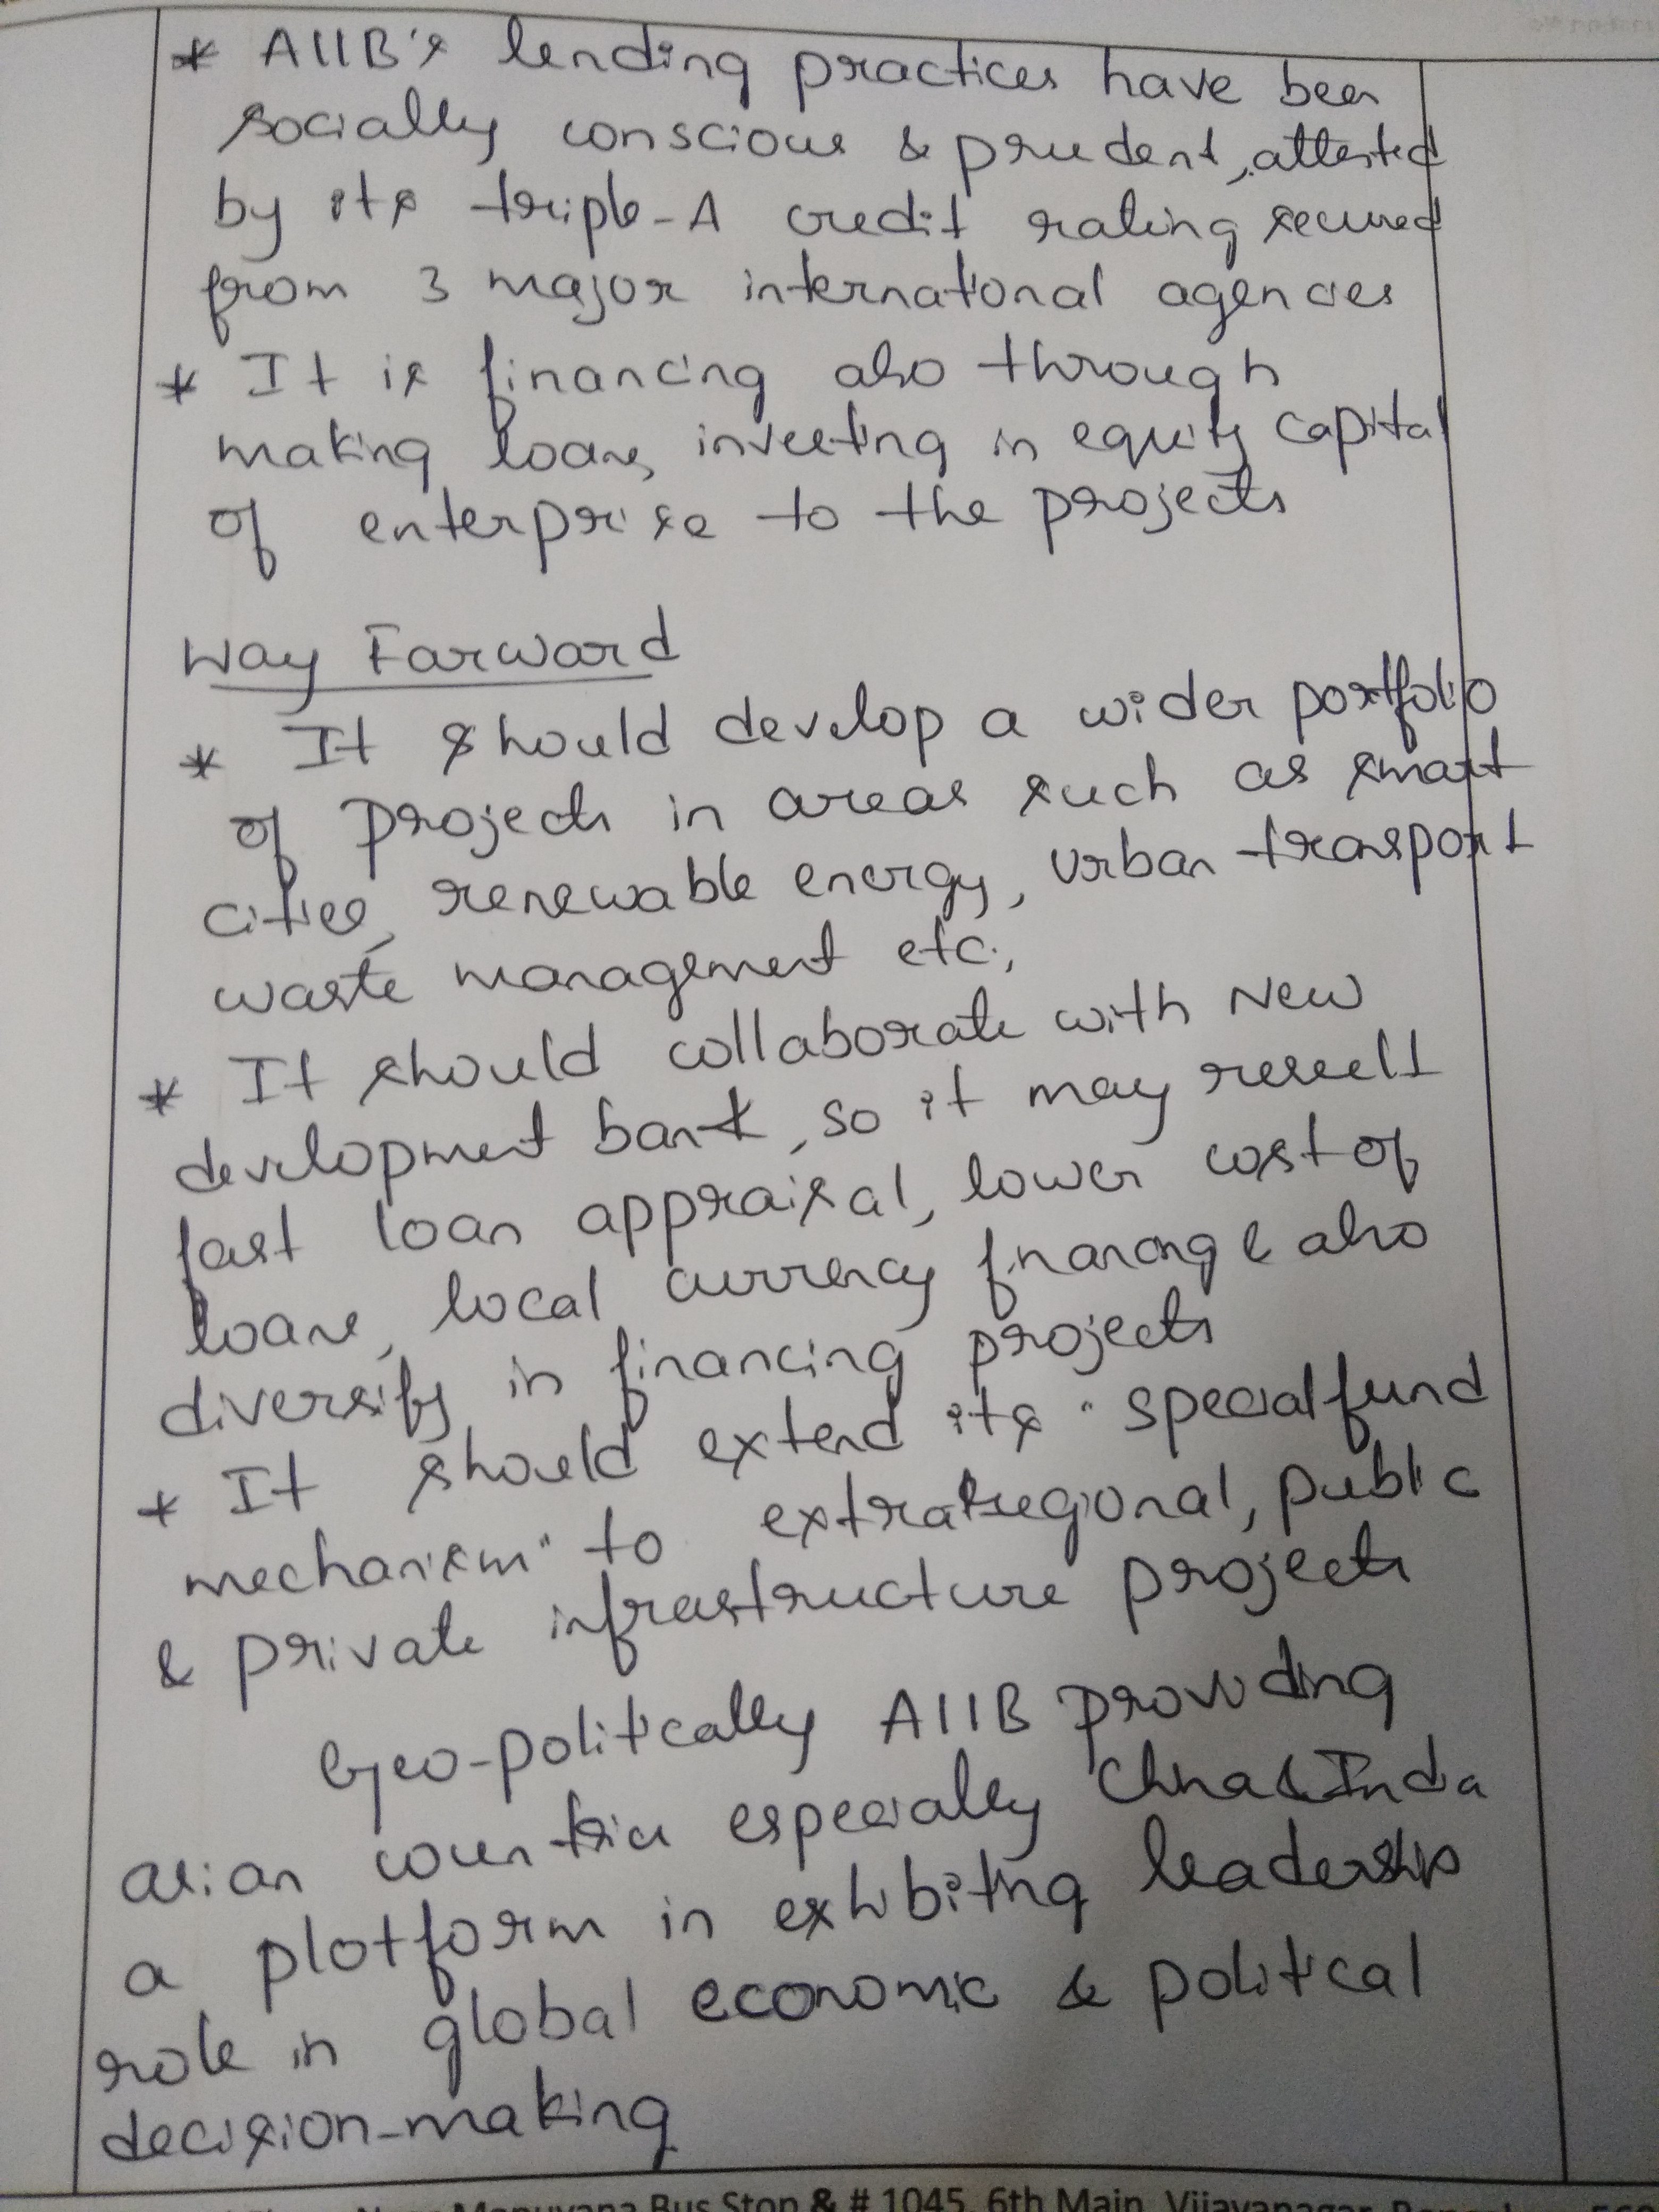 * AIIB's lending practices have been
socially conscious & prudent, attested
by its triple-A credit rating secured
from 3 major international agencies
* It is financing also through
making loans, investing in equity capital
of enterprise to the projects
Way Farward
* It should develop a wider portfolio
of projects in areas such as smart
cities, renewable energy, urban transport
waste management etc.,
* It should collaborate with New
development bank, so it may result
fast loan appraisal, lower cost of
loans, local currency financing & also
diversify in financing projects
* It should extend its "special fund
mechanism" to extraregional, public
& private infrastructure projects
Geo-politically AIIB providing
asian countries especially China & India
a platform in exhibiting leadership
role in global economic & political
decision-making
Bus Stop & # 1045, 6th Main, Vijayanagar,